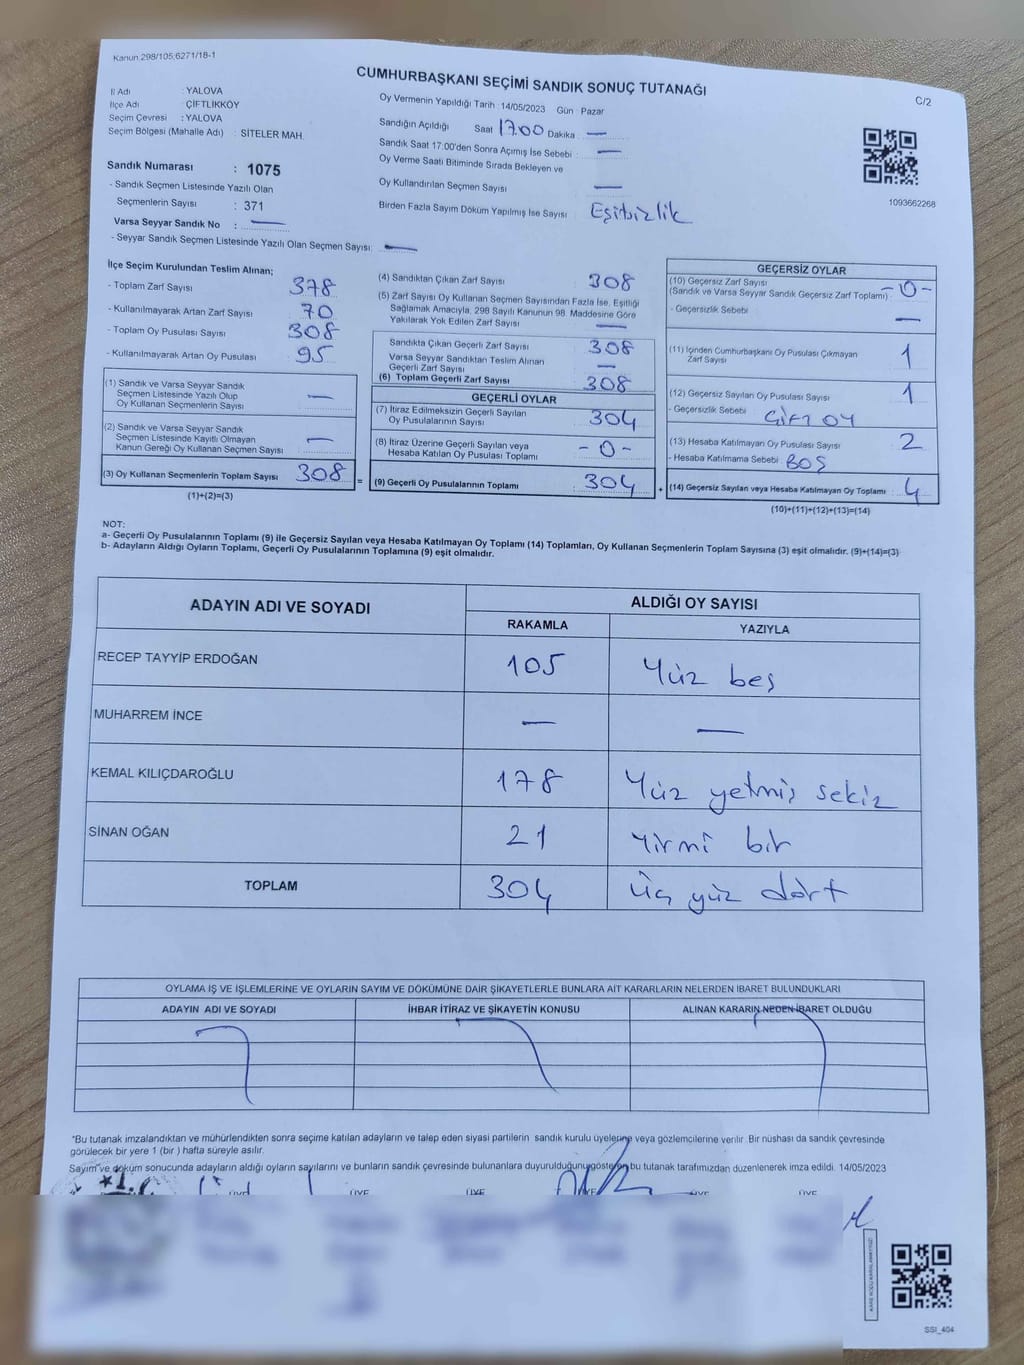 Kanun 298/105,6271/18-1
CUMHURBAŞKANI SEÇİMİ SANDIK SONUÇ TUTANAĞI
C/2
İl Adı : YALOVA
İlçe Adı : ÇİFTLİKKÖY
Seçim Çevresi : YALOVA
Seçim Bölgesi (Mahalle Adı) : SİTELER MAH.
Sandık Numarası : 1075
- Sandık Seçmen Listesinde Yazılı Olan
Seçmenlerin Sayısı : 371
Varsa Seyyar Sandık No : —
- Seyyar Sandık Seçmen Listesinde Yazılı Olan Seçmen Sayısı: —
Oy Vermenin Yapıldığı Tarih : 14/05/2023 Gün : Pazar
Sandığın Açıldığı Saat 17.00 Dakika : —
Sandık Saat 17:00'den Sonra Açımış İse Sebebi : —
Oy Verme Saati Bitiminde Sırada Bekleyen ve
Oy Kullandırılan Seçmen Sayısı —
Birden Fazla Sayım Döküm Yapılmış İse Sayısı : Eşitsizlik
1093662268
İlçe Seçim Kurulundan Teslim Alınan;
- Toplam Zarf Sayısı 378
- Kullanılmayarak Artan Zarf Sayısı : 70
- Toplam Oy Pusulası Sayısı : 308
- Kullanılmayarak Artan Oy Pusulası : 95
(1) Sandık ve Varsa Seyyar Sandık
Seçmen Listesinde Yazılı Olup
Oy Kullanan Seçmenlerin Sayısı —
(2) Sandık ve Varsa Seyyar Sandık
Seçmen Listesinde Kayıtlı Olmayan
Kanun Gereği Oy Kullanan Seçmen Sayısı : —
(3) Oy Kullanan Seçmenlerin Toplam Sayısı 308 =
(1)+(2)=(3)
(4) Sandıktan Çıkan Zarf Sayısı 308
(5) Zarf Sayısı Oy Kullanan Seçmen Sayısından Fazla İse, Eşitliği
Sağlamak Amacıyla, 298 Sayılı Kanunun 98. Maddesine Göre
Yakılarak Yok Edilen Zarf Sayısı —
Sandıkta Çıkan Geçerli Zarf Sayısı : 308
Varsa Seyyar Sandıktan Teslim Alınan
Geçerli Zarf Sayısı : —
(6) Toplam Geçerli Zarf Sayısı : 308
GEÇERLİ OYLAR
(7) İtiraz Edilmeksizin Geçerli Sayılan
Oy Pusulalarının Sayısı : 304
(8) İtiraz Üzerine Geçerli Sayılan veya
Hesaba Katılan Oy Pusulası Toplamı : - 0 -
(9) Geçerli Oy Pusulalarının Toplamı : 304 +
GEÇERSİZ OYLAR
(10) Geçersiz Zarf Sayısı
(Sandık ve Varsa Seyyar Sandık Geçersiz Zarf Toplamı) : -0-
- Geçersizlik Sebebi : —
(11) İçinden Cumhurbaşkanı Oy Pusulası Çıkmayan
Zarf Sayısı : 1
(12) Geçersiz Sayılan Oy Pusulası Sayısı : 1
- Geçersizlik Sebebi : ÇİFT OY
(13) Hesaba Katılmayan Oy Pusulası Sayısı : 2
- Hesaba Katılmama Sebebi : BOŞ
(14) Geçersiz Sayılan veya Hesaba Katılmayan Oy Toplamı : 4
(10)+(11)+(12)+(13)=(14)
NOT:
a- Geçerli Oy Pusulalarının Toplamı (9) ile Geçersiz Sayılan veya Hesaba Katılmayan Oy Toplamı (14) Toplamları, Oy Kullanan Seçmenlerin Toplam Sayısına (3) eşit olmalıdır. (9)+(14)=(3)
b- Adayların Aldığı Oyların Toplamı, Geçerli Oy Pusulalarının Toplamına (9) eşit olmalıdır.
ADAYIN ADI VE SOYADI ALDIĞI OY SAYISI
RAKAMLA YAZIYLA
RECEP TAYYİP ERDOĞAN 105 Yüz beş
MUHARREM İNCE — —
KEMAL KILIÇDAROĞLU 178 Yüz yetmiş sekiz
SİNAN OĞAN 21 Yirmi bir
TOPLAM 304 Üç yüz dört
OYLAMA İŞ VE İŞLEMLERİNE VE OYLARIN SAYIM VE DÖKÜMÜNE DAİR ŞİKAYETLERLE BUNLARA AİT KARARLARIN NELERDEN İBARET BULUNDUKLARI
ADAYIN ADI VE SOYADI İHBAR İTİRAZ VE ŞİKAYETİN KONUSU ALINAN KARARIN NEDEN İBARET OLDUĞU
*Bu tutanak imzalandıktan ve mühürlendikten sonra seçime katılan adayların ve talep eden siyasi partilerin sandık kurulu üyelerine veya gözlemcilerine verilir. Bir nüshası da sandık çevresinde
görülecek bir yere 1 (bir ) hafta süreyle asılır.
Sayım ve döküm sonucunda adayların aldığı oyların sayılarını ve bunların sandık çevresinde bulunanlara duyurulduğunu gösteren bu tutanak tarafımızdan düzenlenerek imza edildi. 14/05/2023
ÜYE ÜYE ÜYE ÜYE ÜYE
SSI_404